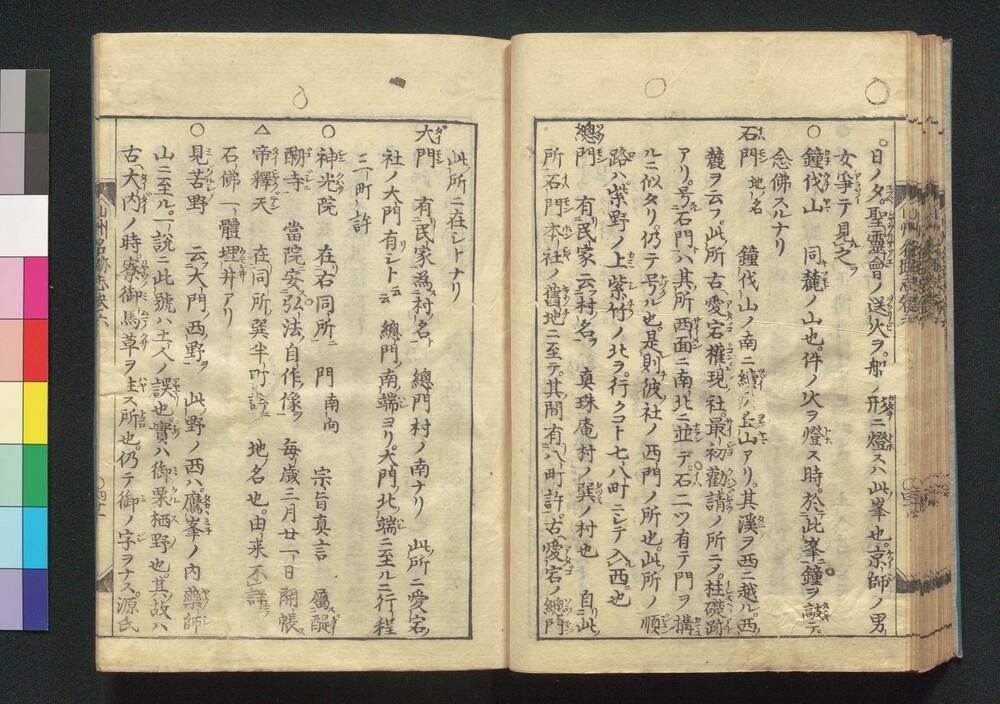 日ノ夕。聖靈會ノ送火ヲ。船ノ形ニ燈スハ此峯也。京師ノ男
女爭テ見之
○鐘伐山 同麓ノ山也。件ノ火ヲ燈ス時。於此峯鐘ヲ敲テ。
念佛スルナリ
石門 地ノ名 鐘伐山ノ南ニ續テ玉山アリ。其溪ヲ西ニ越ル。西
麓ヲ云フ。此所古愛宕權現社。最初勸請ノ所ニノ。柱礎跡
アリ。号石門ハ其所西面ニ南北ニ並デ。石二ツ有テ門ヲ構
ルニ似タリ。仍テ号ル也。是則彼社ノ西門ノ所也。此所ノ順
路ハ紫野ノ上紫竹ノ北ヲ。行クコト七八町ニシテ入西也
總門 有民家云村名 真珠庵村ノ巽ノ村也 自此
所石門本社ノ舊地ニ至テ。其間有八町許。古愛宕ノ總門
此所ニ在シトナリ
大門 有民家為村名 總門村ノ南ナリ 此所ニ愛宕
社ノ大門有シト云云 總門ノ南端ヨリ。大門ノ北端ニ至ルニ行程
二町許
○神光院 在右同所 門南向 宗旨真言 屬醍
醐寺 當院安弘法自作像 毎歳三月廿一日開帳
△帝釋天 在同所巽半町許 地名也。由来不詳
石佛一體埋井アリ
○見苦野 云大門西野 此野ノ西ハ鷹峯ノ内藥師
山ニ至ル。一說ニ此號ハ土人ノ誤也。實ハ御栗栖野也。其故ハ
古大内ノ時寮御馬草ヲ生ス所也。仍テ御ノ字ヲナス。源氏
山州名跡志卷六